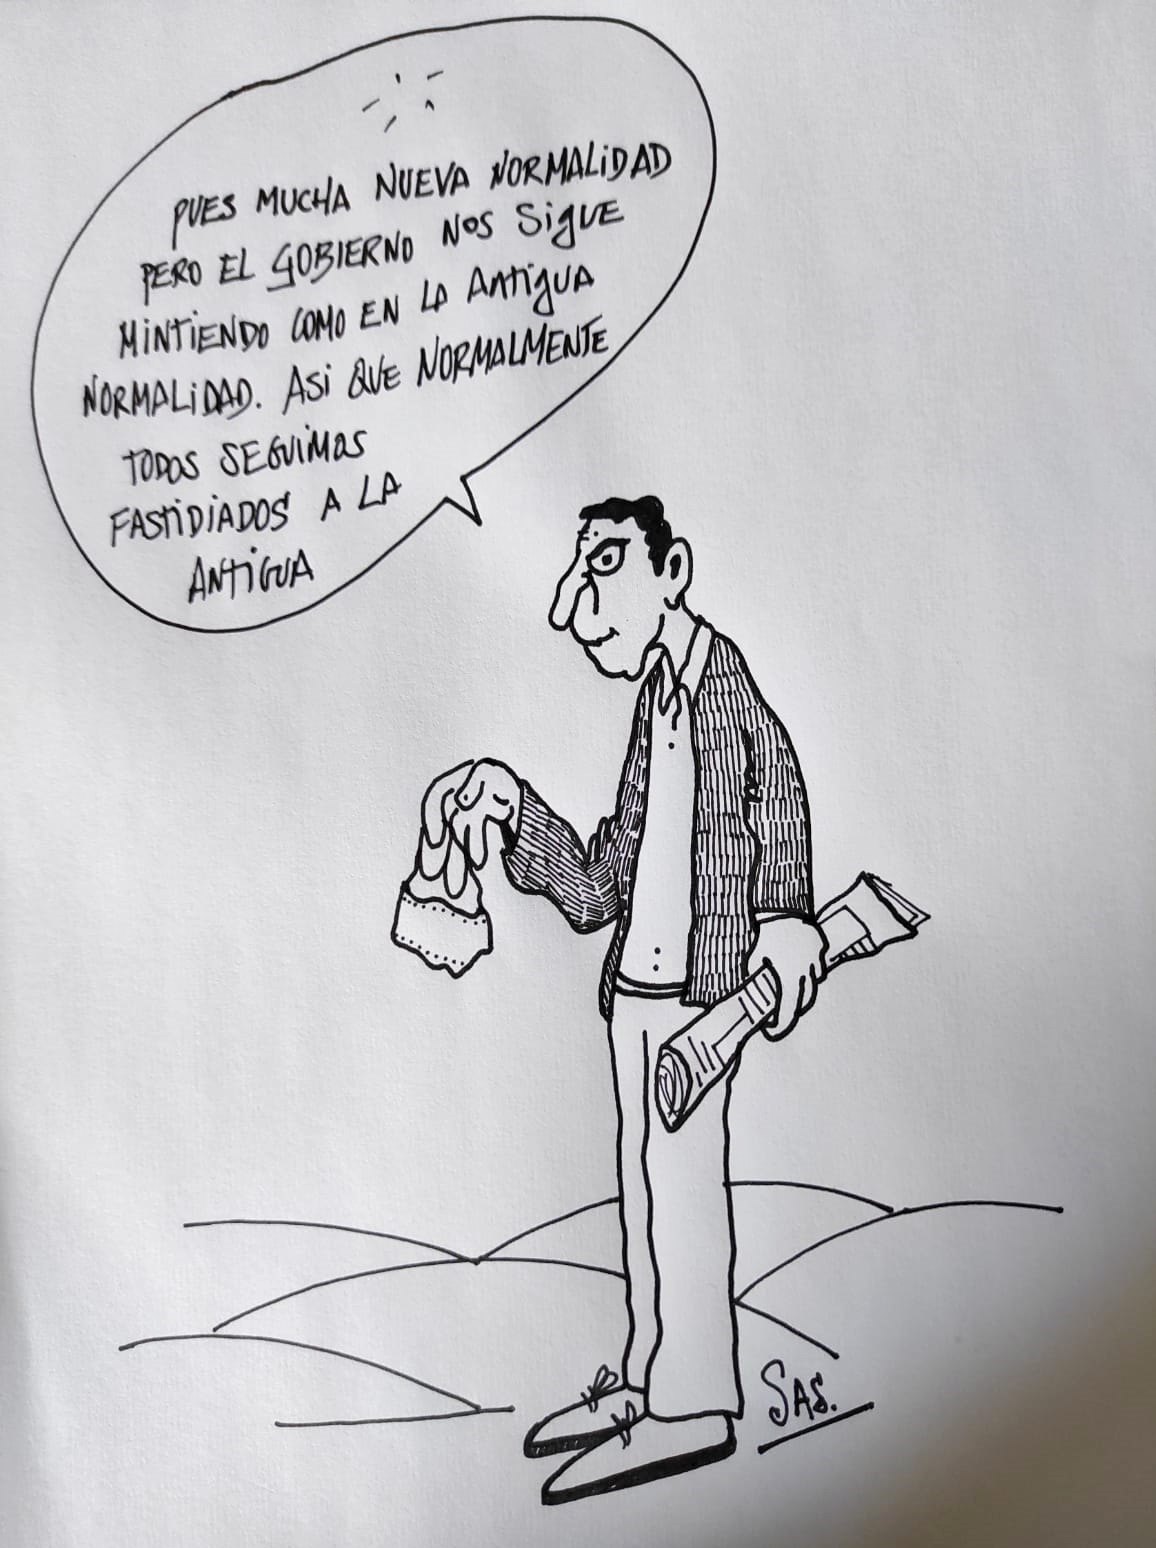 PUES MUCHA NUEVA NORMALIDAD
PERO EL GOBIERNO NOS SIGUE
MINTIENDO COMO EN LA ANTIGUA
NORMALIDAD. ASI QUE NORMALMENTE
TODOS SEGUIMOS
FASTIDIADOS A LA
ANTIGUA
SAS.